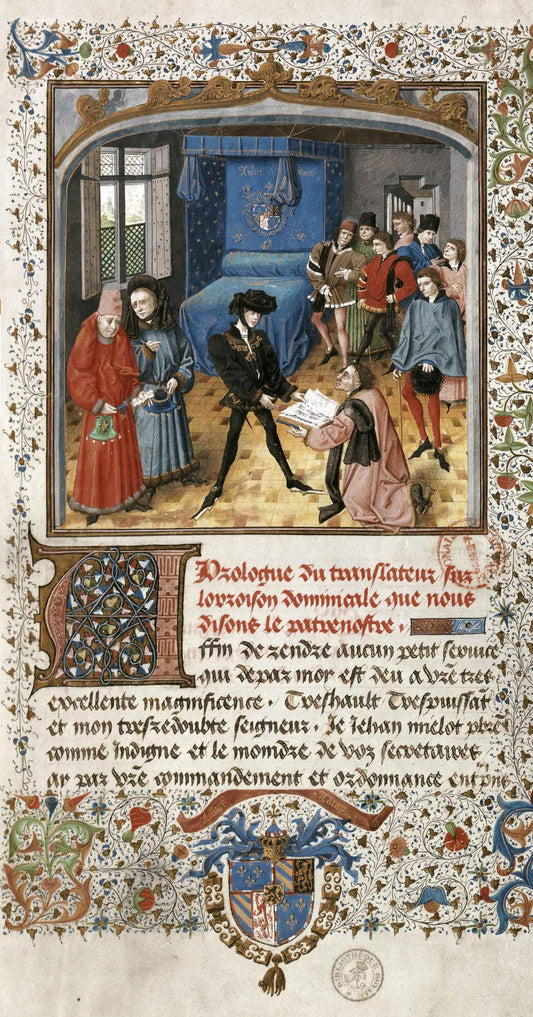 Prologue du translateur sur
lorroison dominicale que nous
disons le patrenostre.
Affin de rendre aucun petit service
qui de par moy est deu a vr̄e tres
excellente magnificence. Treshault Trespuissāt
et mon tresredoubte seigneur. Je Jehan mielot pb̄re
comme Indigne et le moindre de voz secretaires
ay par vr̄e commandement et ordonnance
BIBLIOTHÈQUE